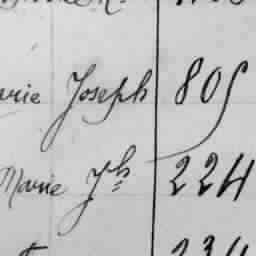 arie Joseph 805
Marie Jh 224